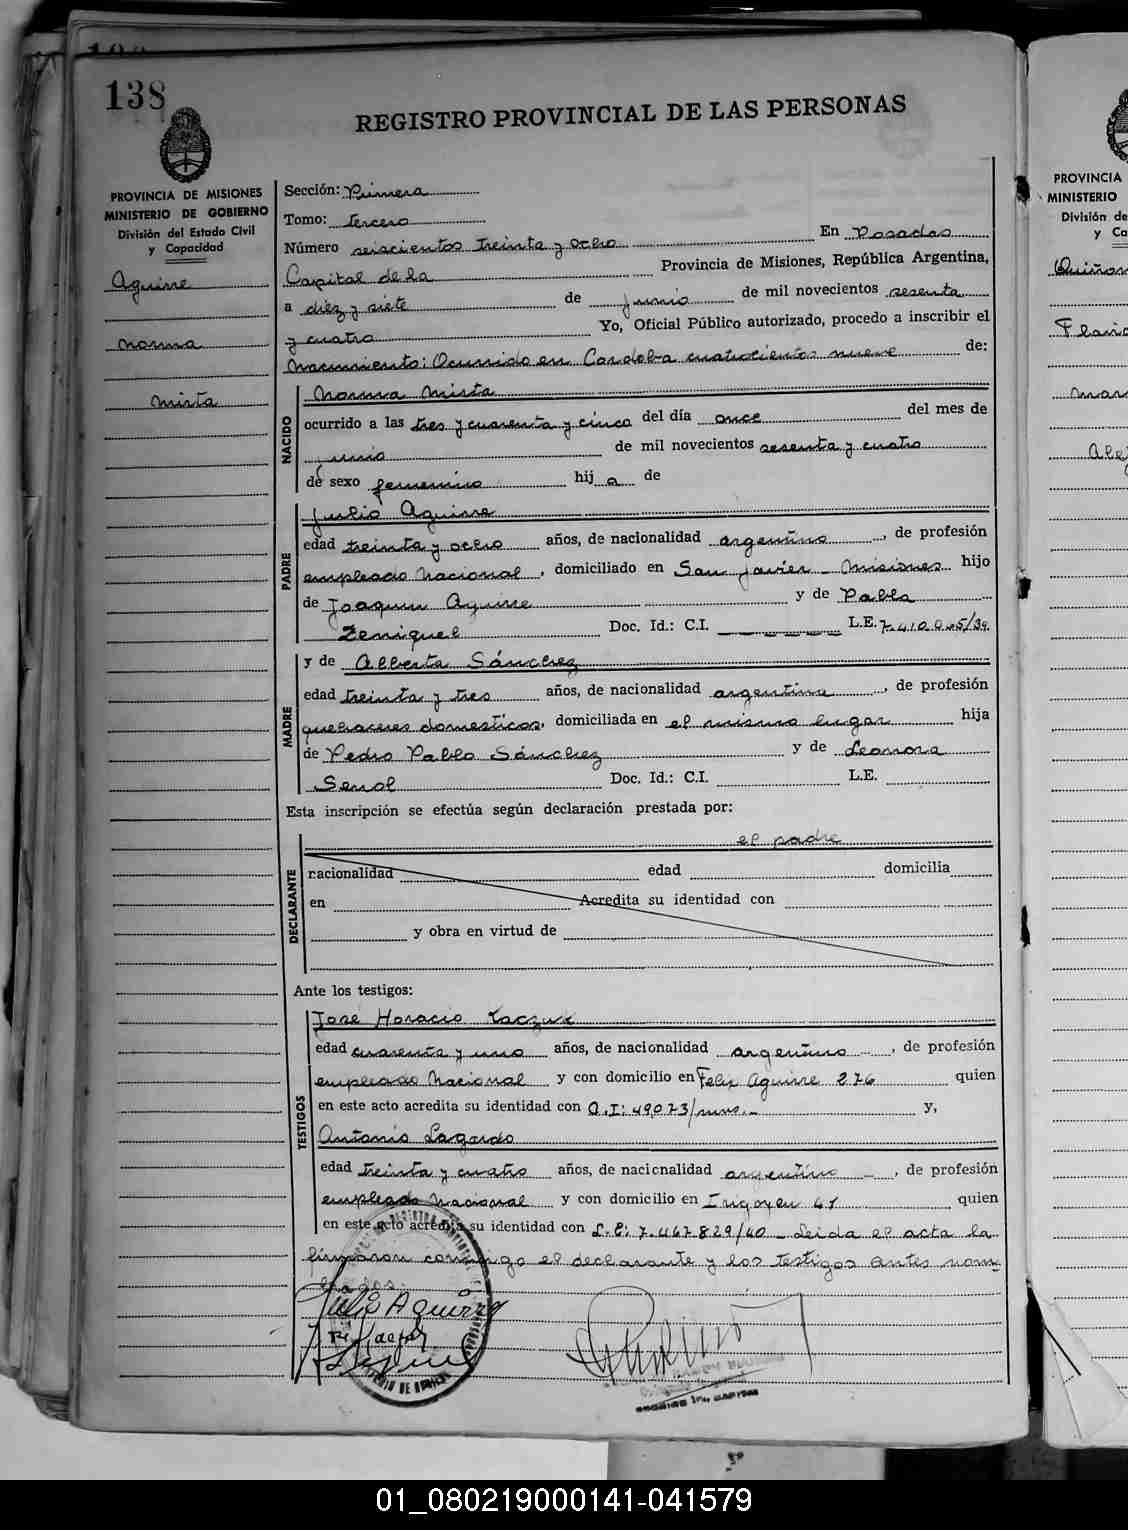 138
REGISTRO PROVINCIAL DE LAS PERSONAS
PROVINCIA DE MISIONES
MINISTERIO DE GOBIERNO
División del Estado Civil
y Capacidad
Aguirre
Norma
Mirta
Sección: Primera
Tomo: tercero
Número seiscientos treinta y ocho En Posadas
Capital de la Provincia de Misiones, República Argentina,
a diez y siete de junio de mil novecientos sesenta
y cuatro Yo, Oficial Público autorizado, procedo a inscribir el
nacimiento: Ocurrido en Cordoba cuatrocientos nueve de:
NACIDO
Norma Mirta
ocurrido a las tres y cuarenta y cinco del día once del mes de
junio de mil novecientos sesenta y cuatro
de sexo femenino hij a de
PADRE
Julio Aguirre
edad treinta y ocho años, de nacionalidad argentino, de profesión
empleado Nacional, domiciliado en San Javier - Misiones hijo
de Joaquin Aguirre y de Pabla
Zeniquel Doc. Id.: C.I. L.E.
MADRE
y de Alberta Sánchez
edad treinta y tres años, de nacionalidad argentina, de profesión
quehaceres domesticos, domiciliada en el mismo lugar hija
de Pedro Pablo Sánchez y de Leonora
Doc. Id.: C.I. L.E.
Esta inscripción se efectúa según declaración prestada por:
DECLARANTE
el padre
nacionalidad edad domicilia
en Acredita su identidad con
y obra en virtud de
Ante los testigos:
TESTIGOS
José Horacio
edad cuarenta y uno años, de nacionalidad argentino, de profesión
empleado Nacional y con domicilio en Felix Aguirre 276 quien
en este acto acredita su identidad con y,
Antonio
edad treinta y cuatro años, de nacionalidad argentino, de profesión
empleado Nacional y con domicilio en Irigoyen 41 quien
en este acto acredita su identidad con L.E: 7.467.829/40 - Leida el acta la
firmaron conmigo el declarante y los testigos antes nom-
brados.
Julio Aguirre
PROVINCIA
MINISTERIO
División de
y Ca
01_080219000141-041579